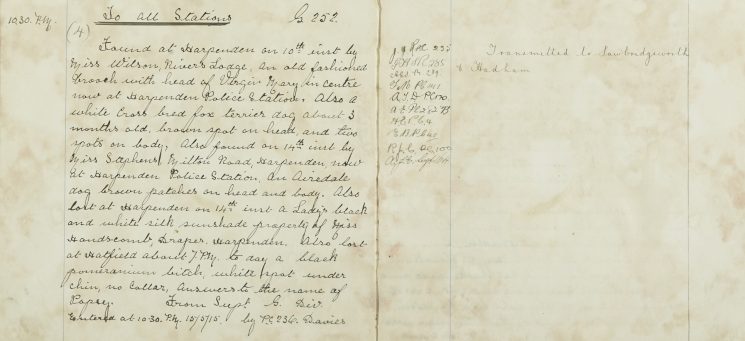 10.30. P.M.
(4) To All Stations G 252.
Found at Harpenden on 10th inst by
Miss Wilson, Rivers Lodge, an old fashioned
brooch with head of Virgin Mary, in centre
now at Harpenden Police Station. Also a
white Cross bred fox terrier dog about 3
months old, brown spot on head, and two
spots on body. Also found on 14th inst by
Miss Stephens, Milton Road, Harpenden now
at Harpenden Police Station, an Airedale
dog brown patches on head and body. Also
lost at Harpenden on 14th inst a Lady's black
and white silk sunshade property of Miss
Handscomb, Draper, Harpenden. Also lost
at Hatfield about 7 P.M. to day a black
pomeranium bitch, white spot under
chin, no Collar, answers to the name of
Popsy. From Supt G. Div
Entered at 10.30. P.M. 15/5/15. by P.C 236. Davies
Transmitted to Sawbridgeworth
& Hadham